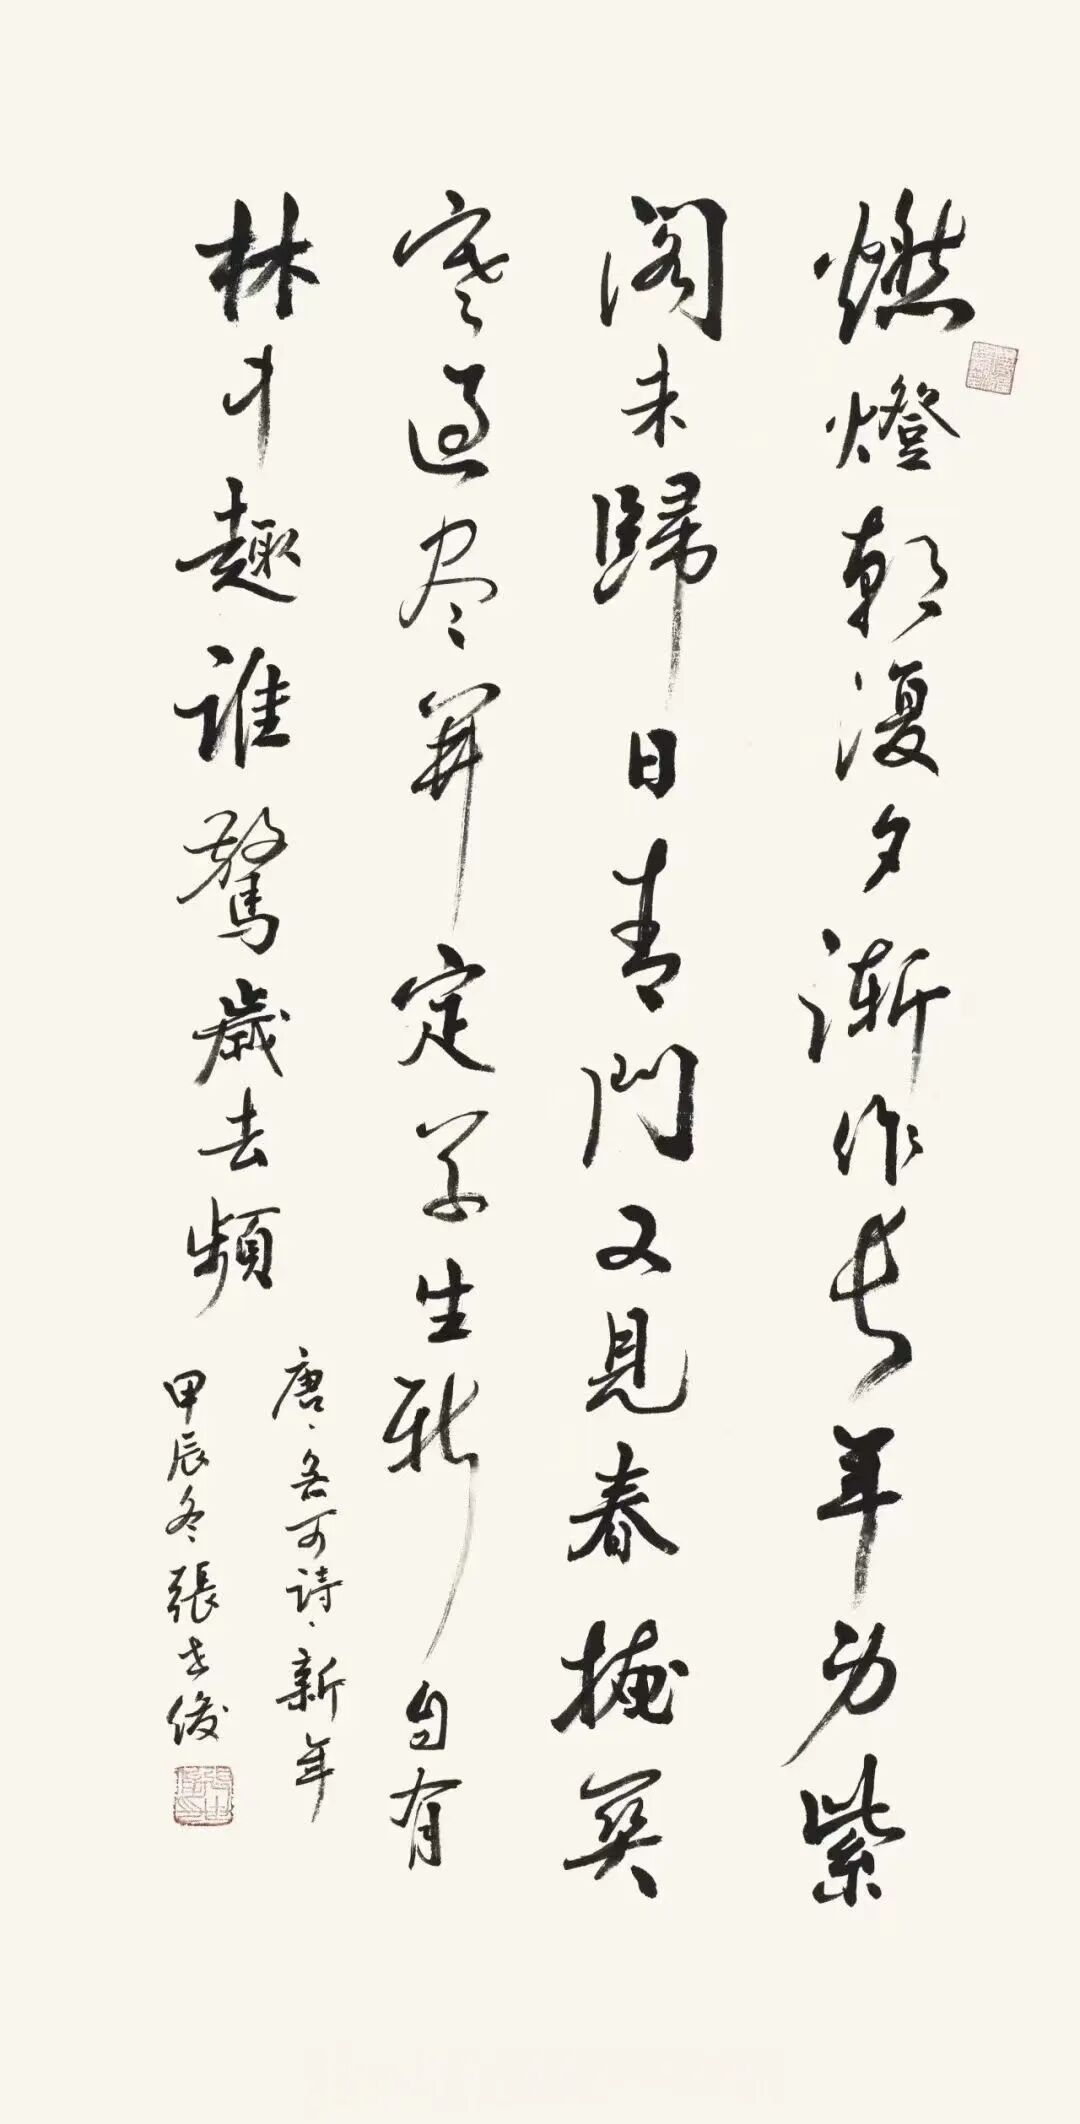 燃燈朝復夕漸作長年身紫
閣未歸日青門又見春掩關
寒過尽開定草生新自有
林中趣誰驚歲去頻
唐、無可詩、新年
甲辰冬張世俊